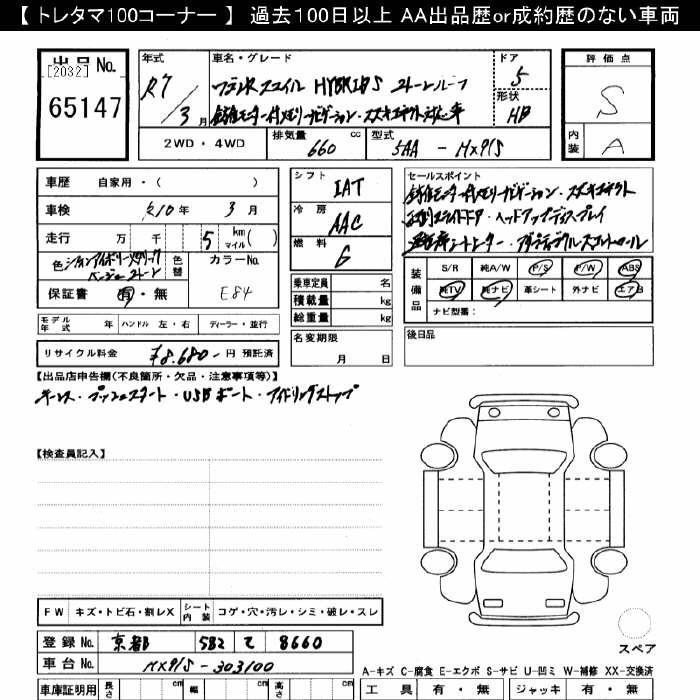 【 トレタマ100コーナー 】 過去100日以上 AA出品歴or成約歴のない車両
出品 No.
[2032]
65147
年式
R7/3月
車名・グレード
ワゴンRスマイル HYBRID S 2トーンルーフ
全方位モニター付メモリーナビゲーション・スズキコネクト対応車
ドア
5
形状
HB
評価点
S
内装
A
2WD・4WD
排気量 660 cc
型式 5AA - MX91S
車歴 自家用・( )
車検 R10年 3月
走行 万 千 5 km マイル ( )
色 2トーン
色替
カラーNo. E84
保証書 有・無
モデル年式 年
ハンドル 左・右
ディーラー・並行
リサイクル料金 ¥8,680-円 預託済
シフト IAT
冷房 AAC
燃料 G
乗車定員 名
積載量 kg
総重量 kg
名変期限
月 日
セールスポイント
全方位モニター付メモリーナビゲーション・スズキコネクト
両側スライドドア・ヘッドアップディスプレイ
運転席シートヒーター・アダプティブクルーズコントロール
装備品
S/R 純A/W P/S P/W ABS
純TV 純ナビ 革シート 外ナビ エアB
ナビ型番:
後日品
【出品店申告欄(不良箇所・欠品・注意事項等)】
キーレス・プッシュスタート・USBポート・アイドリングストップ
【検査員記入】
FW キズ・トビ石・割レX
シート内装 コゲ・穴・汚レ・シミ・破レ・スレ
登録No. 京都 582 て 8660
車台No. MX91S-303100
スペア
A-キズ C-腐食 E-エクボ S-サビ U-凹ミ W-補修 XX-交換済
車庫証明用 長さ cm 幅 cm 高さ cm
工具 有・無 ジャッキ 有・無